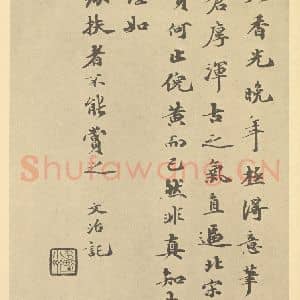 香光晚年極得意筆
蒼厚渾古之氣直逼北宋
何止倪黃而已然非真知
如
扶者不能賞之 文治記
Shufawang.CN